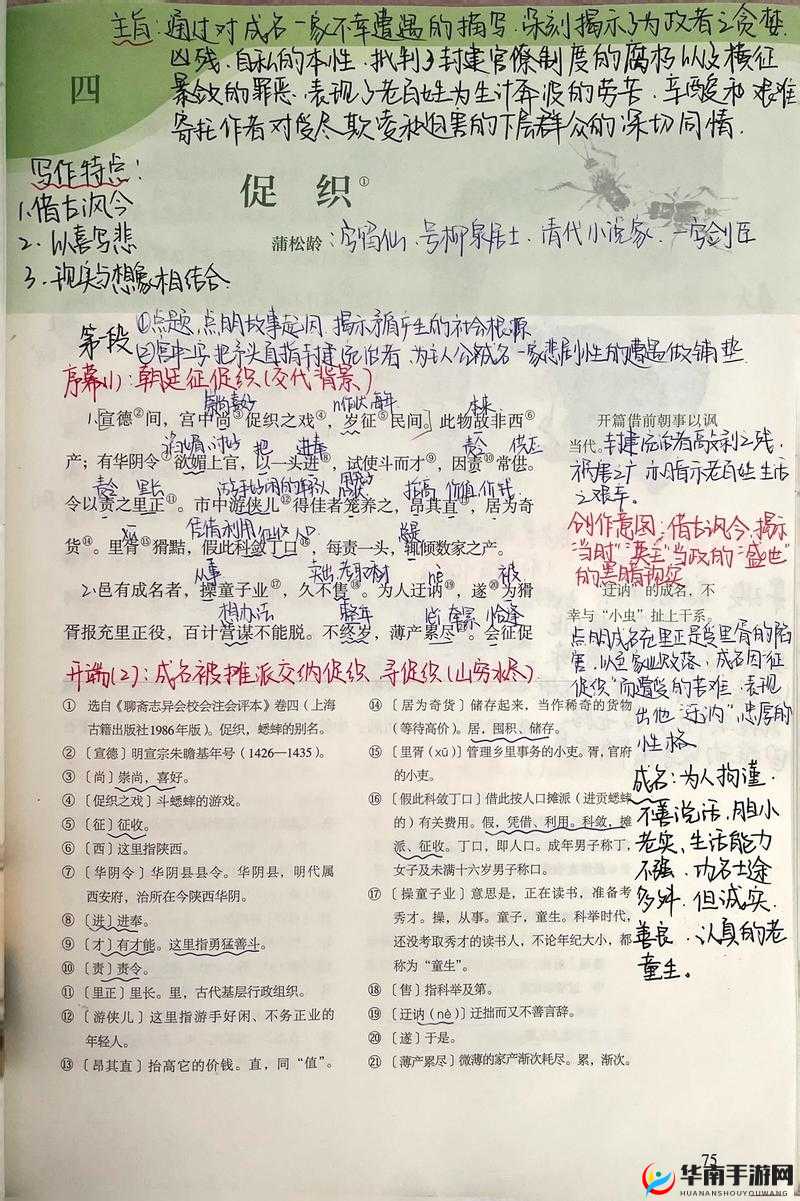 主旨:通过对成名一家不幸遭遇的描写,深刻揭示了为政者之贪婪
凶残、自私的本性,批判了封建官僚制度的腐朽以及横征
暴敛的罪恶,表现了老百姓为生计奔波的劳苦、辛酸和艰难
寄托作者对受尽欺凌和迫害的下层群众的深切同情.
四
写作特点:
1.借古讽今
2.以喜写悲
3.现实与想象相结合.
促织①
蒲松龄:字留仙、号柳泉居士、清代小说家、一字剑臣
第一段
①点题,点明故事起因,揭示矛盾产生的社会根源
为主人公成名一家悲剧性的遭遇做铺垫
序幕(1):朝廷征促织(交代背景)
崇尚喜好
本来
1.宣德②间,宫中尚③促织之戏④,岁征⑤民间。此物故非西⑥
产;有华阴令⑦欲媚上官,以一头进⑧,试使斗而才⑨,因责⑩常供。
令以责之里正⑪。市中游侠儿⑫得佳者笼养之,昂其直⑬,居为奇
货⑭。里胥⑮猾黠,假此科敛丁口⑯,每责一头,辄倾数家之产。
从事
nè
被
2.邑有成名者,操童子业⑰,久不售⑱。为人迂讷⑲,遂⑳为猾
想办法
胥报充里正役,百计营谋不能脱。不终岁,薄产累尽㉑。会征促
开端(2):成名被摊派交纳促织、寻促织(山穷水尽)
开篇借前朝事以讽
当代。
创作意图:借古讽今,揭示
“当时”“英主”当政的“盛世”
的黑暗现实
“迂讷”的成名,不
幸与“小虫”扯上干系。
促织”而遭受的苦难,表现
出他“迂讷”忠厚的
性格
成名:为人拘谨、
不善说话,胆小
老实、生活能力
不强、功名士途
多舛、但诚实、
善良、认真的老
童生。
① 选自《聊斋志异会校会注会评本》卷四(上海
古籍出版社1986年版)。促织,蟋蟀的别名。
②〔宣德〕明宣宗朱瞻基年号(1426—1435)。
③〔尚〕崇尚,喜好。
④〔促织之戏〕斗蟋蟀的游戏。
⑤〔征〕征收。
⑥〔西〕这里指陕西。
⑦〔华阴令〕华阴县县令。华阴县,明代属
西安府,治所在今陕西华阴。
⑧〔进〕进奉。
⑨〔才〕有才能。这里指勇猛善斗。
⑩〔责〕责令。
⑪〔里正〕里长。里,古代基层行政组织。
⑫〔游侠儿〕这里指游手好闲、不务正业的
年轻人。
⑬〔昂其直〕抬高它的价钱。直,同“值”。
⑭〔居为奇货〕储存起来,当作稀奇的货物
(等待高价)。居,囤积、储存。
⑮〔里胥(xū)〕管理乡里事务的小吏。胥,官府
的小吏。
⑯〔假此科敛丁口〕借此按人口摊派(进贡蟋蟀
的)有关费用。假,凭借、利用。科敛,摊
派、征收。丁口,即人口。成年男子称丁,
女子及未满十六岁男子称口。
⑰〔操童子业〕意思是,正在读书,准备考
秀才。操,从事。童子,童生。科举时代,
还没考取秀才的读书人,不论年纪大小,都
称为“童生”。
⑱〔售〕指科举及第。
⑲〔迂讷(nè)〕迂拙而又不善言辞。
⑳〔遂〕于是。
㉑〔薄产累尽〕微薄的家产渐次耗尽。累,渐次。
75
华南手游网
HUANANSHOUYOUWANG